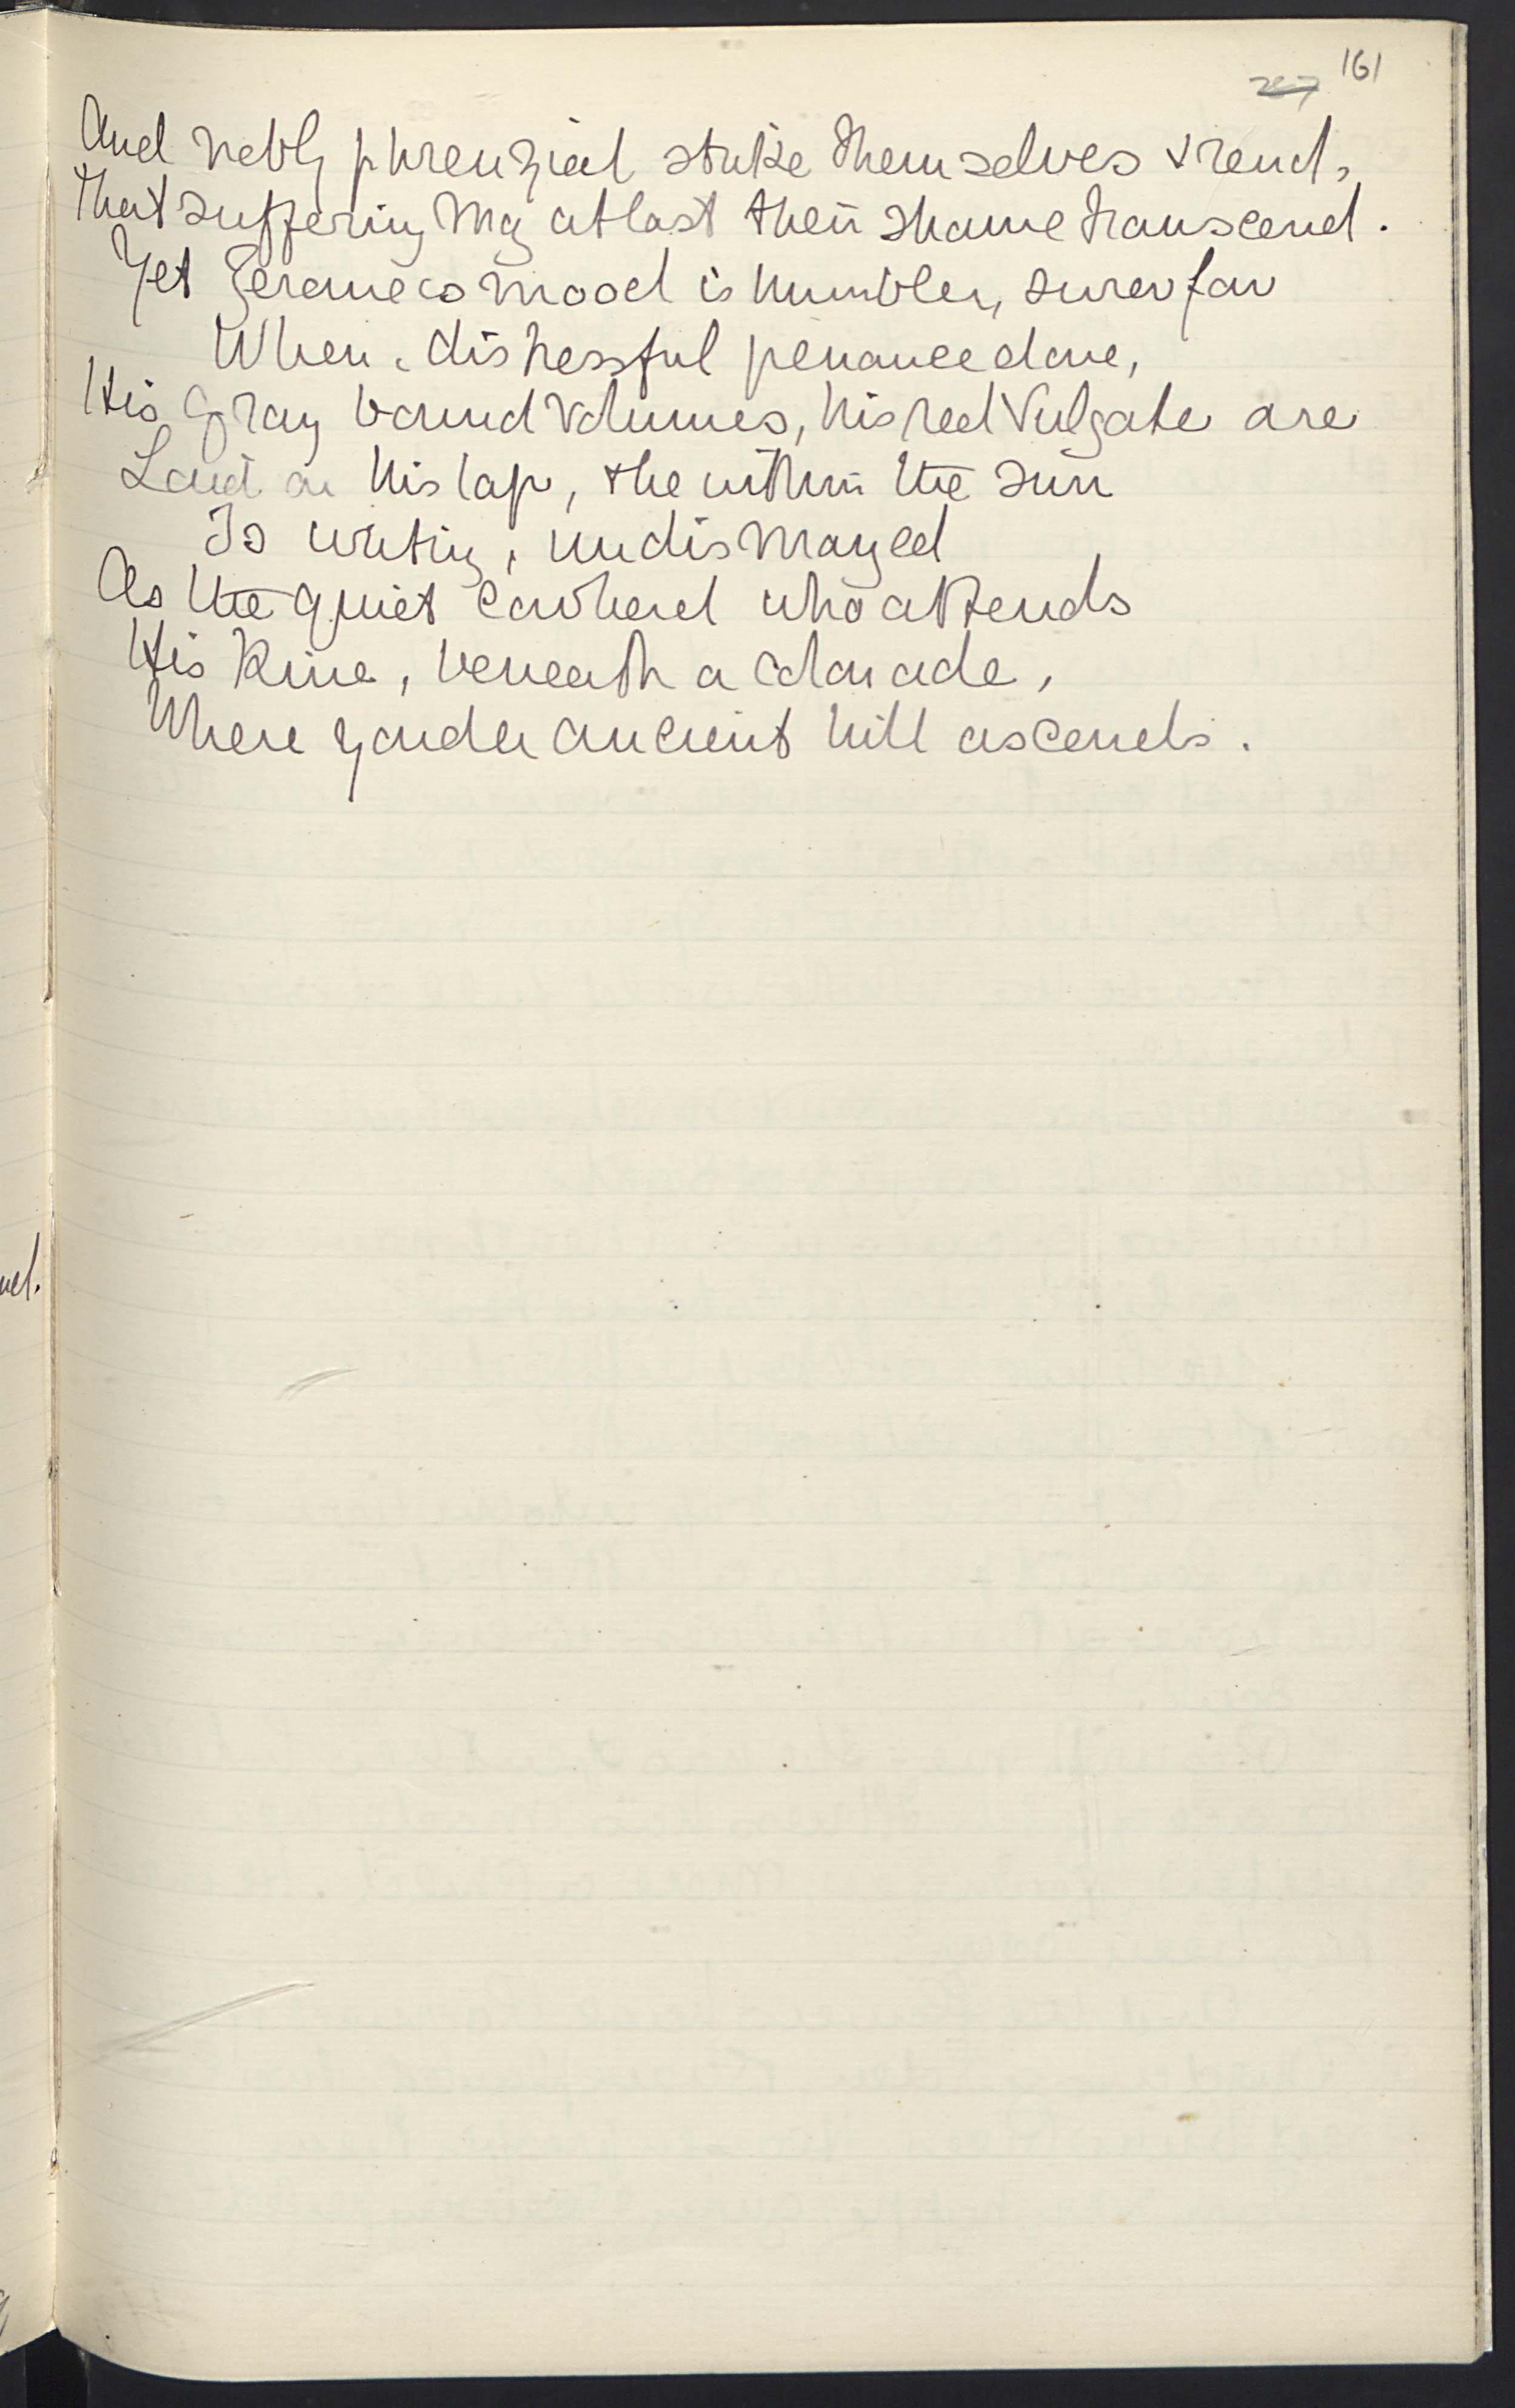 161
And nobly phrenzied strike themselves & rend,
That suffering may at last their shame transcend.
Yet Geromeo's mood is humbler, surer far
When, distressful penance done,
His gray bound volumes, his red Vulgate are
Laid on his lap, & he within the sun
Is writing, undismayed
As the quiet cowherd who attends
His kine, beneath a colonade,
Where yonder ancient hill ascends.